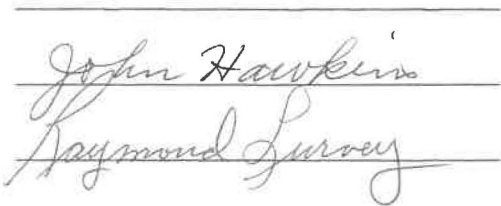 John Hawkins
Raymond Survey